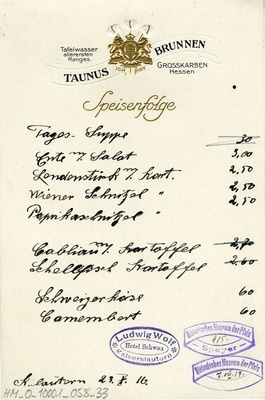 Tafelwasser
allerersten
Ranges.
TAUNUS BRUNNEN
GROSSKARBEN
Hessen
Speisenfolge
Tages-Suppe 30
Ente m/ Salat 3,00
Lendenstück m/ Kart. 2,50
Wiener Schnitzel " 2,50
Paprikaschnitzel " 2,50
Cabliau m/ Kartoffel 2,80
Schellfisch Kartoffel 2.60
Schweizerkäse 60
Camembert 60
Ludwig Wolf
Hotel Schwan
Kaiserslautern
Historisches Museum der Pfalz
Speyer
Historisches Museum der Pfalz
K.lautern 23. 16.
HM_0_1000.1_058_33